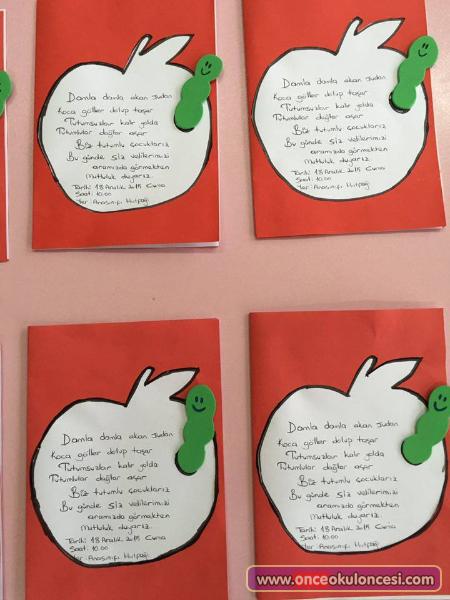 Damla damla akan sudan
Koca göller dolup taşar
Tutumsuzlar kalır yolda
Tutumlular dağlar aşar
Biz tutumlu çocuklarız
Bu günde siz velilerimizi
aramızda görmekten
Mutluluk duyarız.
Tarih: 18 Aralık 2015 Cuma
Saat: 10.00
Yer: Anasınıfı
Damla damla akan sudan
Koca göller dolup taşar
Tutumsuzlar kalır yolda
Tutumlular dağlar aşar
Biz tutumlu çocuklarız
Bu günde siz velilerimizi
aramızda görmekten
Mutluluk duyarız.
Tarih: 18 Aralık 2015 Cuma
Saat: 10.00
Yer: Anasınıfı
Damla damla akan sudan
Koca göller dolup taşar
Tutumsuzlar kalır yolda
Tutumlular dağlar aşar
Biz tutumlu çocuklarız
Bu günde siz velilerimizi
aramızda görmekten
Mutluluk duyarız.
Tarih: 18 Aralık 2015 Cuma
Saat: 10.00
Yer: Anasınıfı
Damla damla akan sudan
Koca göller dolup taşar
Tutumsuzlar kalır yolda
Tutumlular dağlar aşar
Biz tutumlu çocuklarız
Bu günde siz velilerimizi
aramızda görmekten
Mutluluk duyarız.
Tarih: 18 Aralık 2015 Cuma
Saat: 10.00
Yer: Anasınıfı
www.onceokuloncesi.com